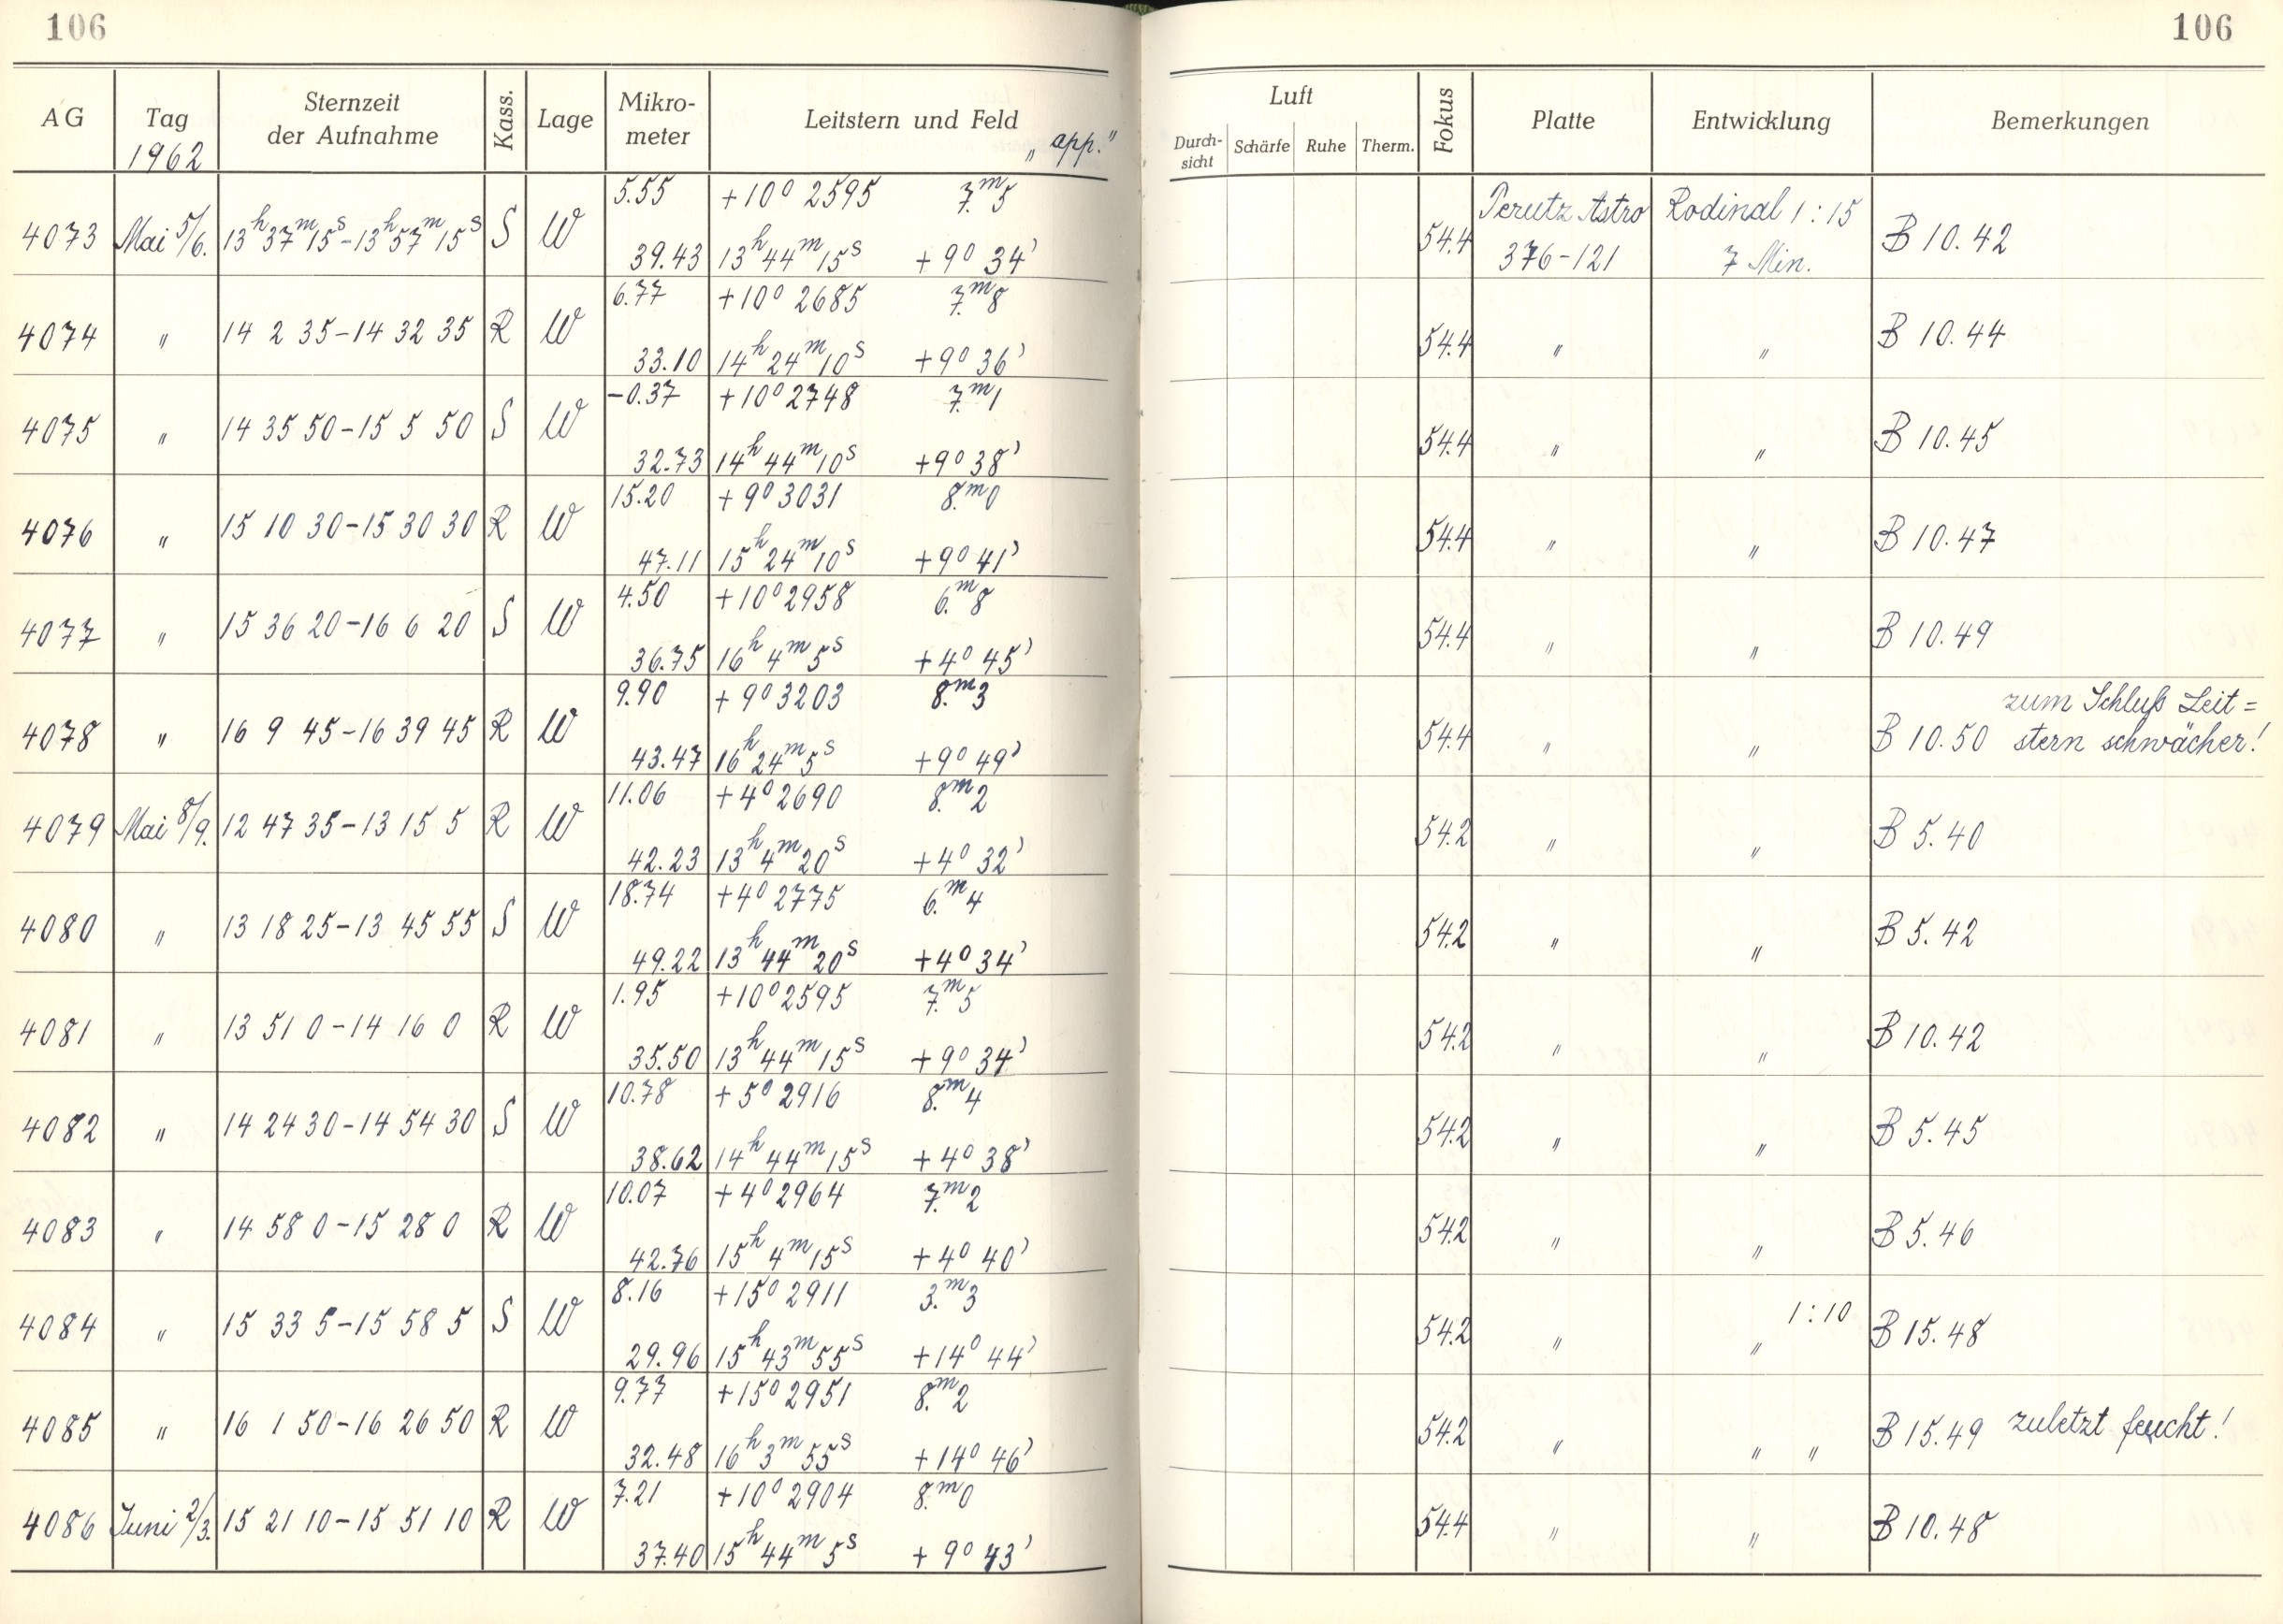 106 106
AG Tag Sternzeit der Aufnahme Kass. Lage Mikro-meter Leitstern und Feld Luft Durch-sicht Schärfe Ruhe Therm. Fokus Platte Entwicklung Bemerkungen
1962 „app."
5.55 +10° 2595 7.m5 Perutz Astro Rodinal 1:15
4073 Mai 5/6. 13h37m15s-13h57m15s S W 54.4 B 10.42
39.43 13h44m15s +9° 34' 376-121 7 Min.
6.77 +10° 2685 7.m8
4074 " 14 2 35-14 32 35 R W 54.4 " " B 10.44
33.10 14h24m10s +9° 36'
-0.37 +10° 2748 7.m1
4075 " 14 35 50-15 5 50 S W 54.4 " " B 10.45
32.73 14h44m10s +9° 38'
15.20 +9° 3031 8.m0
4076 " 15 10 30-15 30 30 R W 54.4 " " B 10.47
47.11 15h24m10s +9° 41'
4.50 +10° 2958 6.m8
4077 " 15 36 20-16 6 20 S W 54.4 " " B 10.49
36.75 16h4m5s +4° 45'
9.90 +9° 3203 8.m3 zum Schluß Leit=
4078 " 16 9 45-16 39 45 R W 54.4 " " B 10.50 stern schwächer!
43.47 16h24m5s +9° 49'
11.06 +4° 2690 8.m2
4079 Mai 8/9. 12 47 35-13 15 5 R W 54.2 " " B 5.40
42.23 13h4m20s +4° 32'
18.74 +4° 2775 6.m4
4080 " 13 18 25-13 45 55 S W 54.2 " " B 5.42
49.22 13h44m20s +4° 34'
1.95 +10° 2595 7.m5
4081 " 13 51 0-14 16 0 R W 54.2 " " B 10.42
35.50 13h44m15s +9° 34'
10.78 +5° 2916 8.m4
4082 " 14 24 30-14 54 30 S W 54.2 " " B 5.45
38.62 14h44m15s +4° 38'
10.07 +4° 2964 7.m2
4083 " 14 58 0-15 28 0 R W 54.2 " " B 5.46
42.76 15h4m15s +4° 40'
8.16 +15° 2911 3.m3
4084 " 15 33 5-15 58 5 S W 54.2 " " 1:10 B 15.48
29.96 15h43m55s +14° 44'
9.77 +15° 2951 8.m2
4085 " 16 1 50-16 26 50 R W 54.2 " " " B 15.49 zuletzt feucht!
32.48 16h3m55s +14° 46'
7.21 +10° 2904 8.m0
4086 Juni 2/3. 15 21 10-15 51 10 R W 54.4 " " B 10.48
37.40 15h44m5s +9° 43'